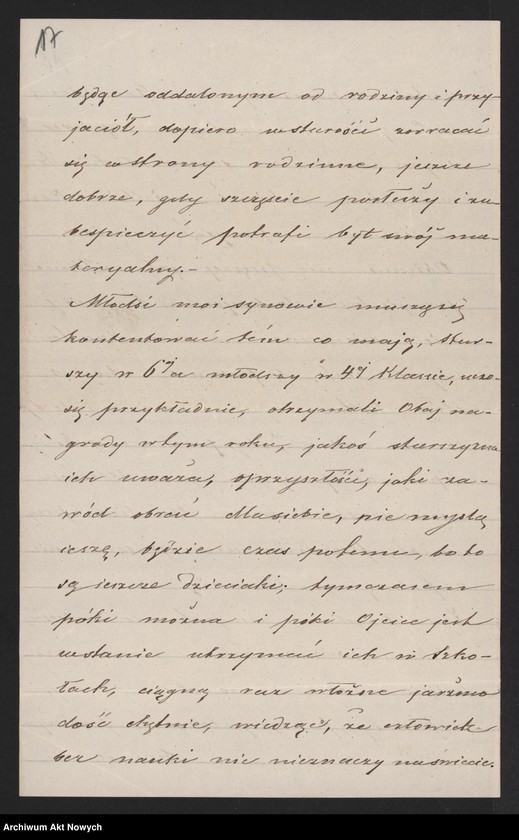 17
będąc oddalonym od rodziny i przy-
jaciół, dopiero w starości zwracać
się w strony rodzinne, jeszcze
dobrze, gdy szczęście posłuży i za-
bespieczyć potrafi byt swój ma-
teryalny.-
Młodsi moi synowie muszą się
kontentować tém co mają, star-
szy w 6éj a młodszy w 4éj Klassie, uczą
się przykładnie, otrzymali Obaj na-
grody w tym roku, jakoś starszyzna
ich uważa, o przyszłości, jaki za-
wód obrać dla siebie, nie myślą
ieszcze, będzie czas potemu, bo to
są ieszcze Dzieciaki; tymczasem
póki można i póki Ojciec jest
w stanie utrzymać ich w szko-
łach, ciągną raz włożne jarzmo
dość chętnie, wiedząc, że człowiek
bez nauki nic nieznaczy na świecie.
Archiwum Akt Nowych